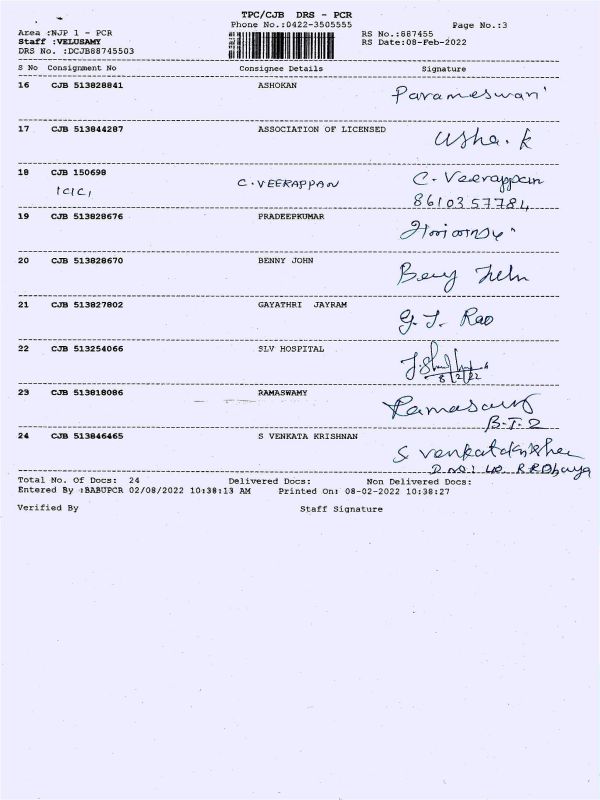 TPC/CJB DRS - PCR
Phone No.:0422-3505555
Page No.:3
Area :NJP 1 - PCR
RS No.:887455
Staff :VELUSAMY
RS Date:08-Feb-2022
DRS No. :DCJB88745503
S No Consignment No Consignee Details Signature
16 CJB 513828841 ASHOKAN Parameswari
17 CJB 513844287 ASSOCIATION OF LICENSED Usha. k
18 CJB 150698 C. VEERAPPAN C. Veerappan
ICICI 8610357784
19 CJB 513828676 PRADEEPKUMAR
20 CJB 513828670 BENNY JOHN Benny John
21 CJB 513827802 GAYATHRI JAYRAM G. J. Rao
22 CJB 513254066 SLV HOSPITAL
8/2/22
23 CJB 513818086 RAMASWAMY Ramasamy
B-T-2
24 CJB 513846465 S VENKATA KRISHNAN S venkatakrishnan
Total No. Of Docs: 24 Delivered Docs: Non Delivered Docs:
Entered By :BABUPCR 02/08/2022 10:38:13 AM Printed On: 08-02-2022 10:38:27
Verified By Staff Signature